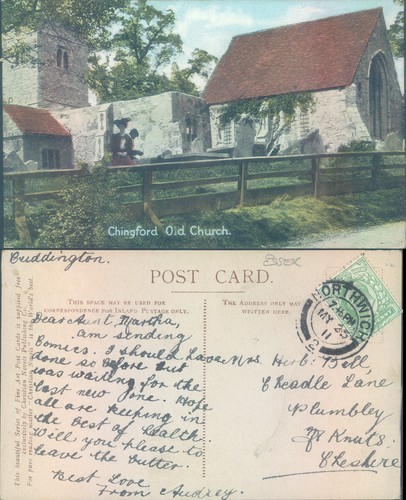 Chingford Old Church.
Buddington.
ESSEX
POST CARD.
THIS SPACE MAY BE USED FOR
CORRESPONDENCE FOR INLAND POSTAGE ONLY.
THE ADDRESS ONLY MAY BE
WRITTEN HERE.
NORTHWICH
MY 25
11
Dear Aunt Martha,
am sending
Comics. I should have
done so before but
was waiting for the
last new one. Hope
all are keeping in
the best of health
Will you please to
leave the butter.
Best Love
From Audrey.
Mrs. Herb. Bell,
Cheadle Lane
Plumbley
Nr Knuts.
Cheshire
This beautiful Series of Fine Art Post Cards is supplied free
exclusively by Christian Novels Publishing Co.